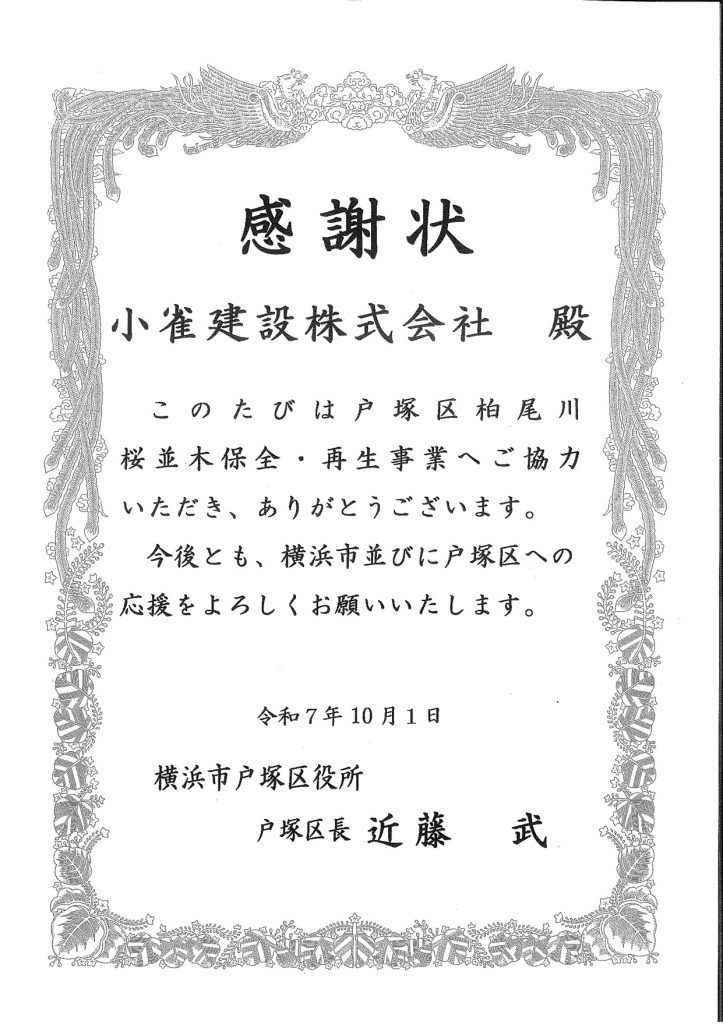 感謝状
小雀建設株式会社　殿
このたびは戸塚区柏尾川
桜並木保全・再生事業へご協力
いただき、ありがとうございます。
今後とも、横浜市並びに戸塚区への
応援をよろしくお願いいたします。
令和７年10月１日
横浜市戸塚区役所
戸塚区長　近藤　武